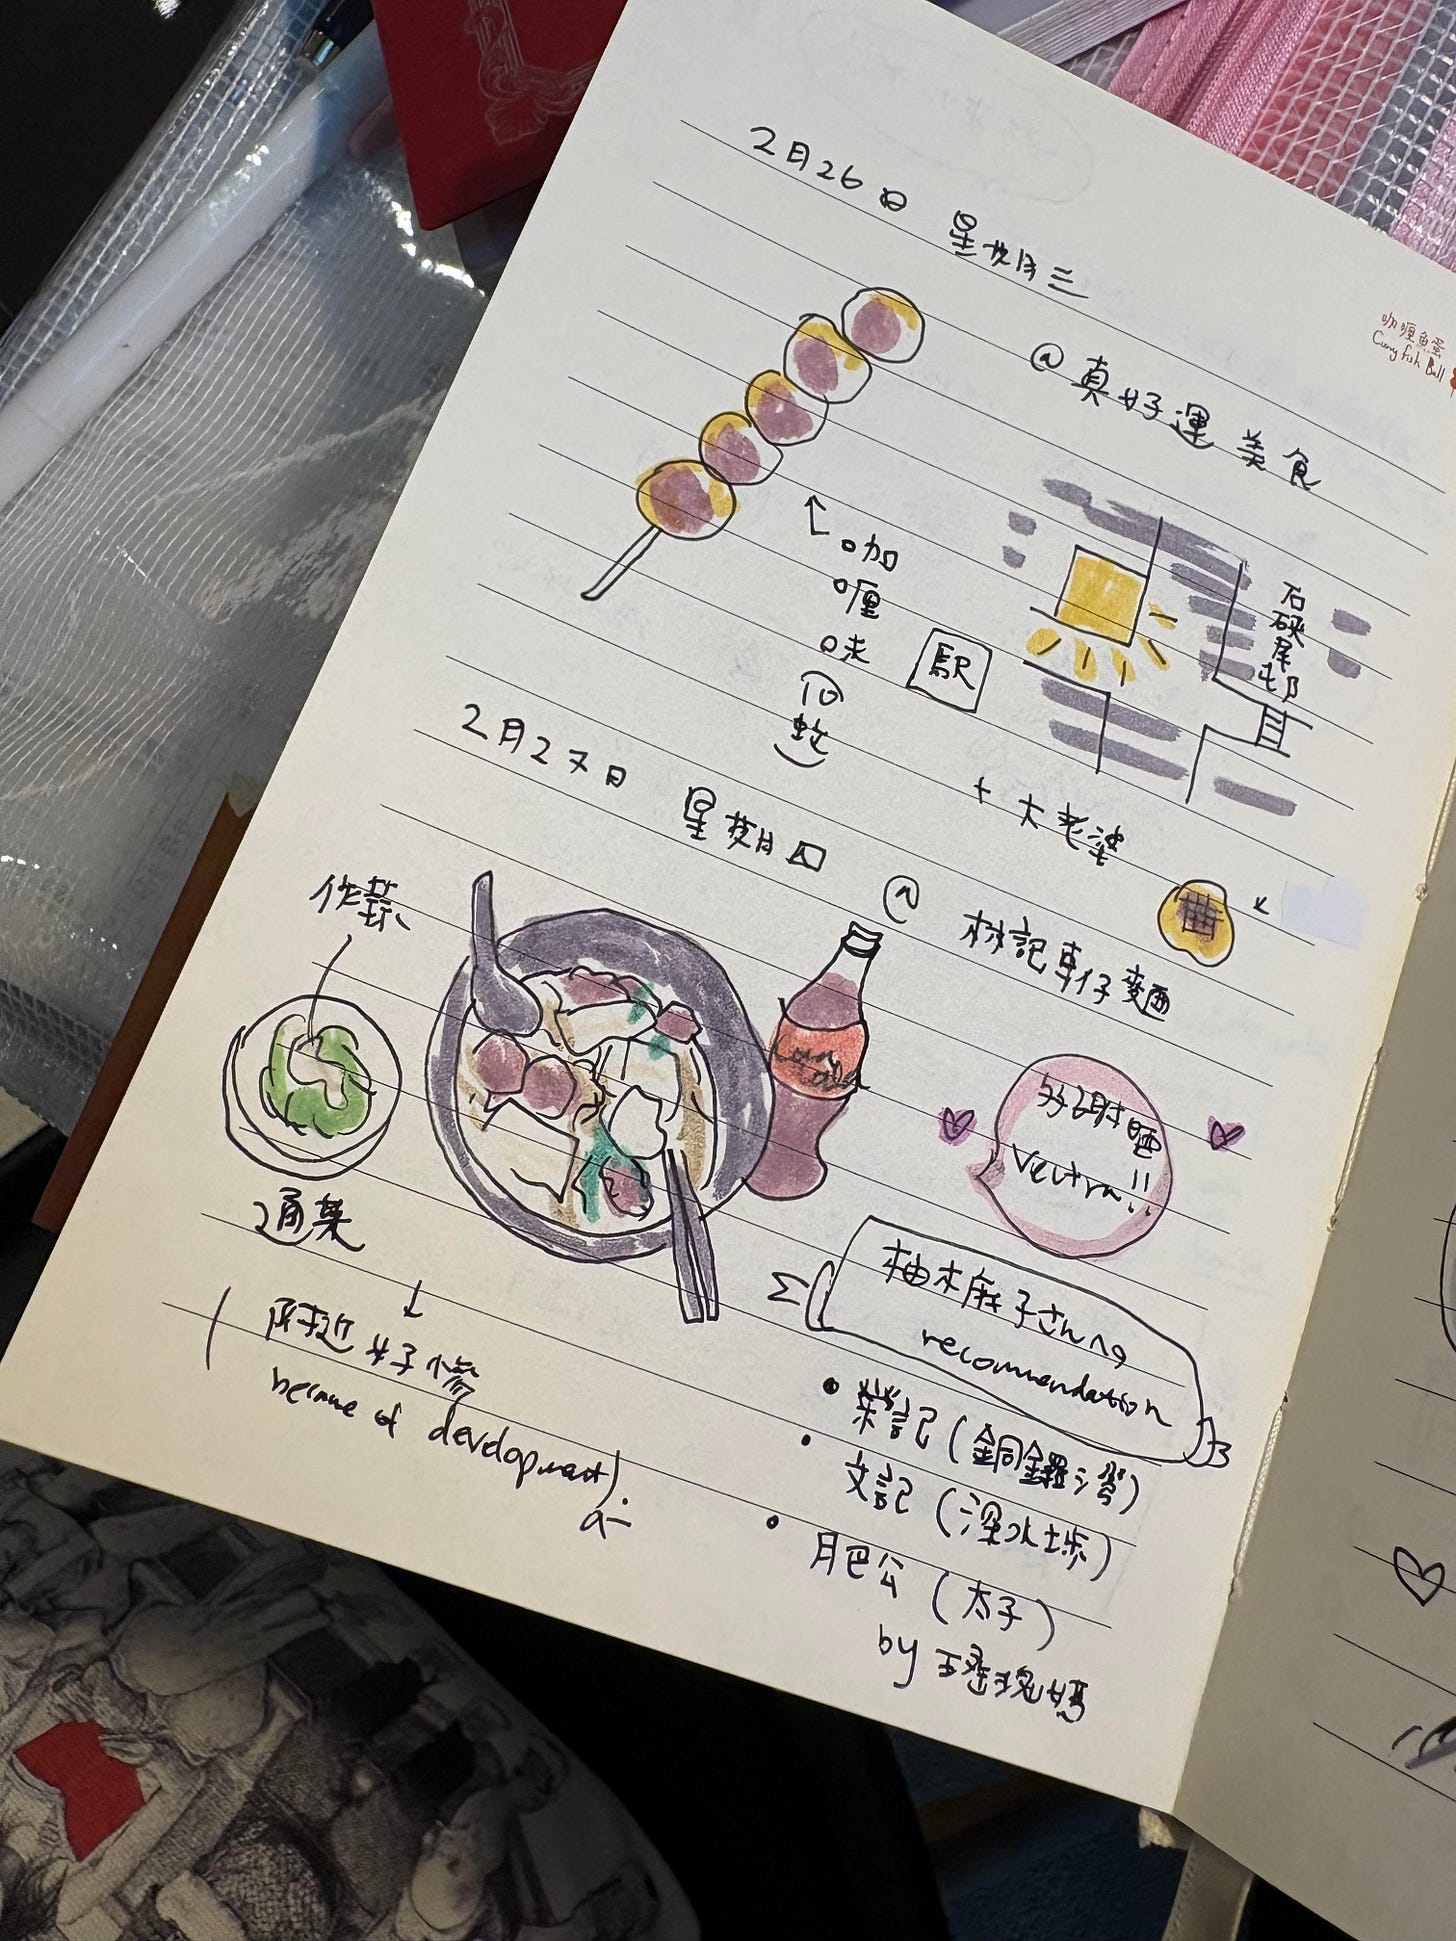 2月26日 星期三
@ 真好運美食
咖喱魚蛋
Curry Fish Ball
↑
咖
喱
味
石硤尾邨
駅
+ 大老婆
2月27日 星期四
@ 林記車仔麵
炸蒜
好謝晒
Veetra!!
通菜
柚木麻子さんへの
recommendation
↓
(附近好慘
because of development)
• 榮記 (銅鑼灣)
• 文記 (深水埗)
• 肥公 (太子)
by